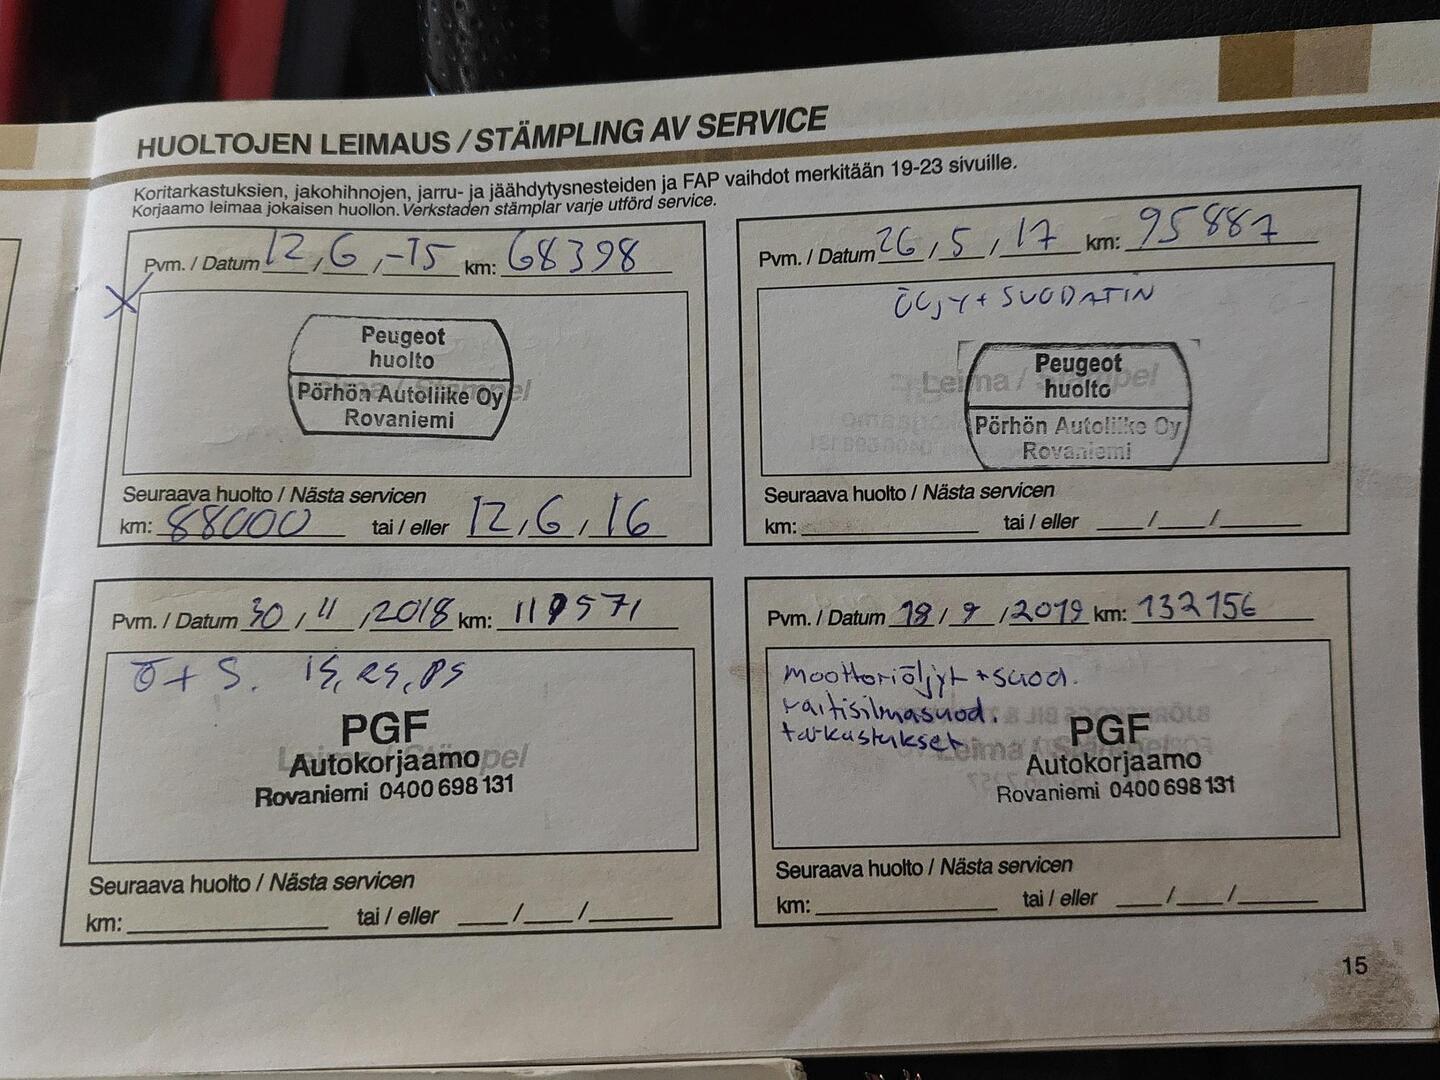 HUOLTOJEN LEIMAUS / STÄMPLING AV SERVICE
Koritarkastuksien, jakohihnojen, jarru- ja jäähdytysnesteiden ja FAP vaihdot merkitään 19-23 sivuille.
Korjaamo leimaa jokaisen huollon. Verkstaden stämplar varje utförd service.
Pvm. / Datum 12,6,-15 km: 68398
X
Peugeot
huolto
Leima / Stämpel
Pörhön Autoliike Oy
Rovaniemi
Seuraava huolto / Nästa servicen
km: 88000 tai / eller 12,6,16
Pvm. / Datum 26,5,17 km: 95887
ÖLJY + SUODATIN
Peugeot
huolto
Leima / Stämpel
Pörhön Autoliike Oy
Rovaniemi
Seuraava huolto / Nästa servicen
km: tai / eller / /
Pvm. / Datum 30 / 11 / 2018 km:
Ö + S. IS, RS, PS
PGF
Leima / Stämpel
Autokorjaamo
Rovaniemi 0400 698 131
Seuraava huolto / Nästa servicen
km: tai / eller / /
Pvm. / Datum / 9 / 2019 km: 132156
Moottoriöljyt + suod.
raitisilmasuod.
tarkastukset
PGF
Leima / Stämpel
Autokorjaamo
Rovaniemi 0400 698 131
Seuraava huolto / Nästa servicen
km: tai / eller / /
15